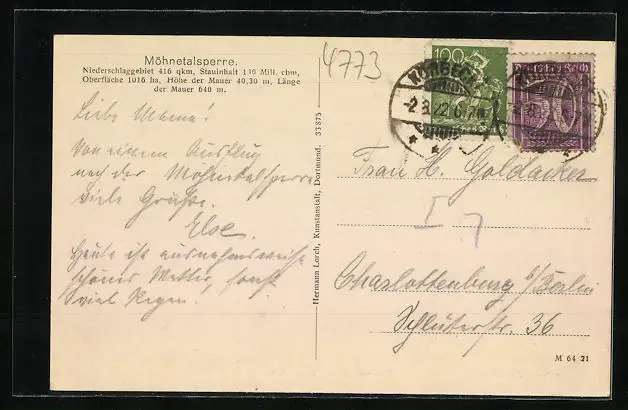 Möhnetalsperre.
Niederschlaggebiet 416 qkm, Stauinhalt 130 Mill. cbm,
Oberfläche 1016 ha, Höhe der Mauer 40,30 m, Länge
der Mauer 640 m.
Liebe Mama!
Von einem Ausflug
nach der Möhnetalsperre
viele Grüße.
Else.
Heute ist ausnahmsweise
schönes Wetter, sonst
viel Regen!
Hermann Lorch, Kunstanstalt, Dortmund. 33875
4773
100
Deutsches Reich
KÖRBECKE
-2.8.22.6-7N
Frau H. Goldacker
I
7
Charlottenburg b/Berlin
Schlüterstr. 36
M 64 21